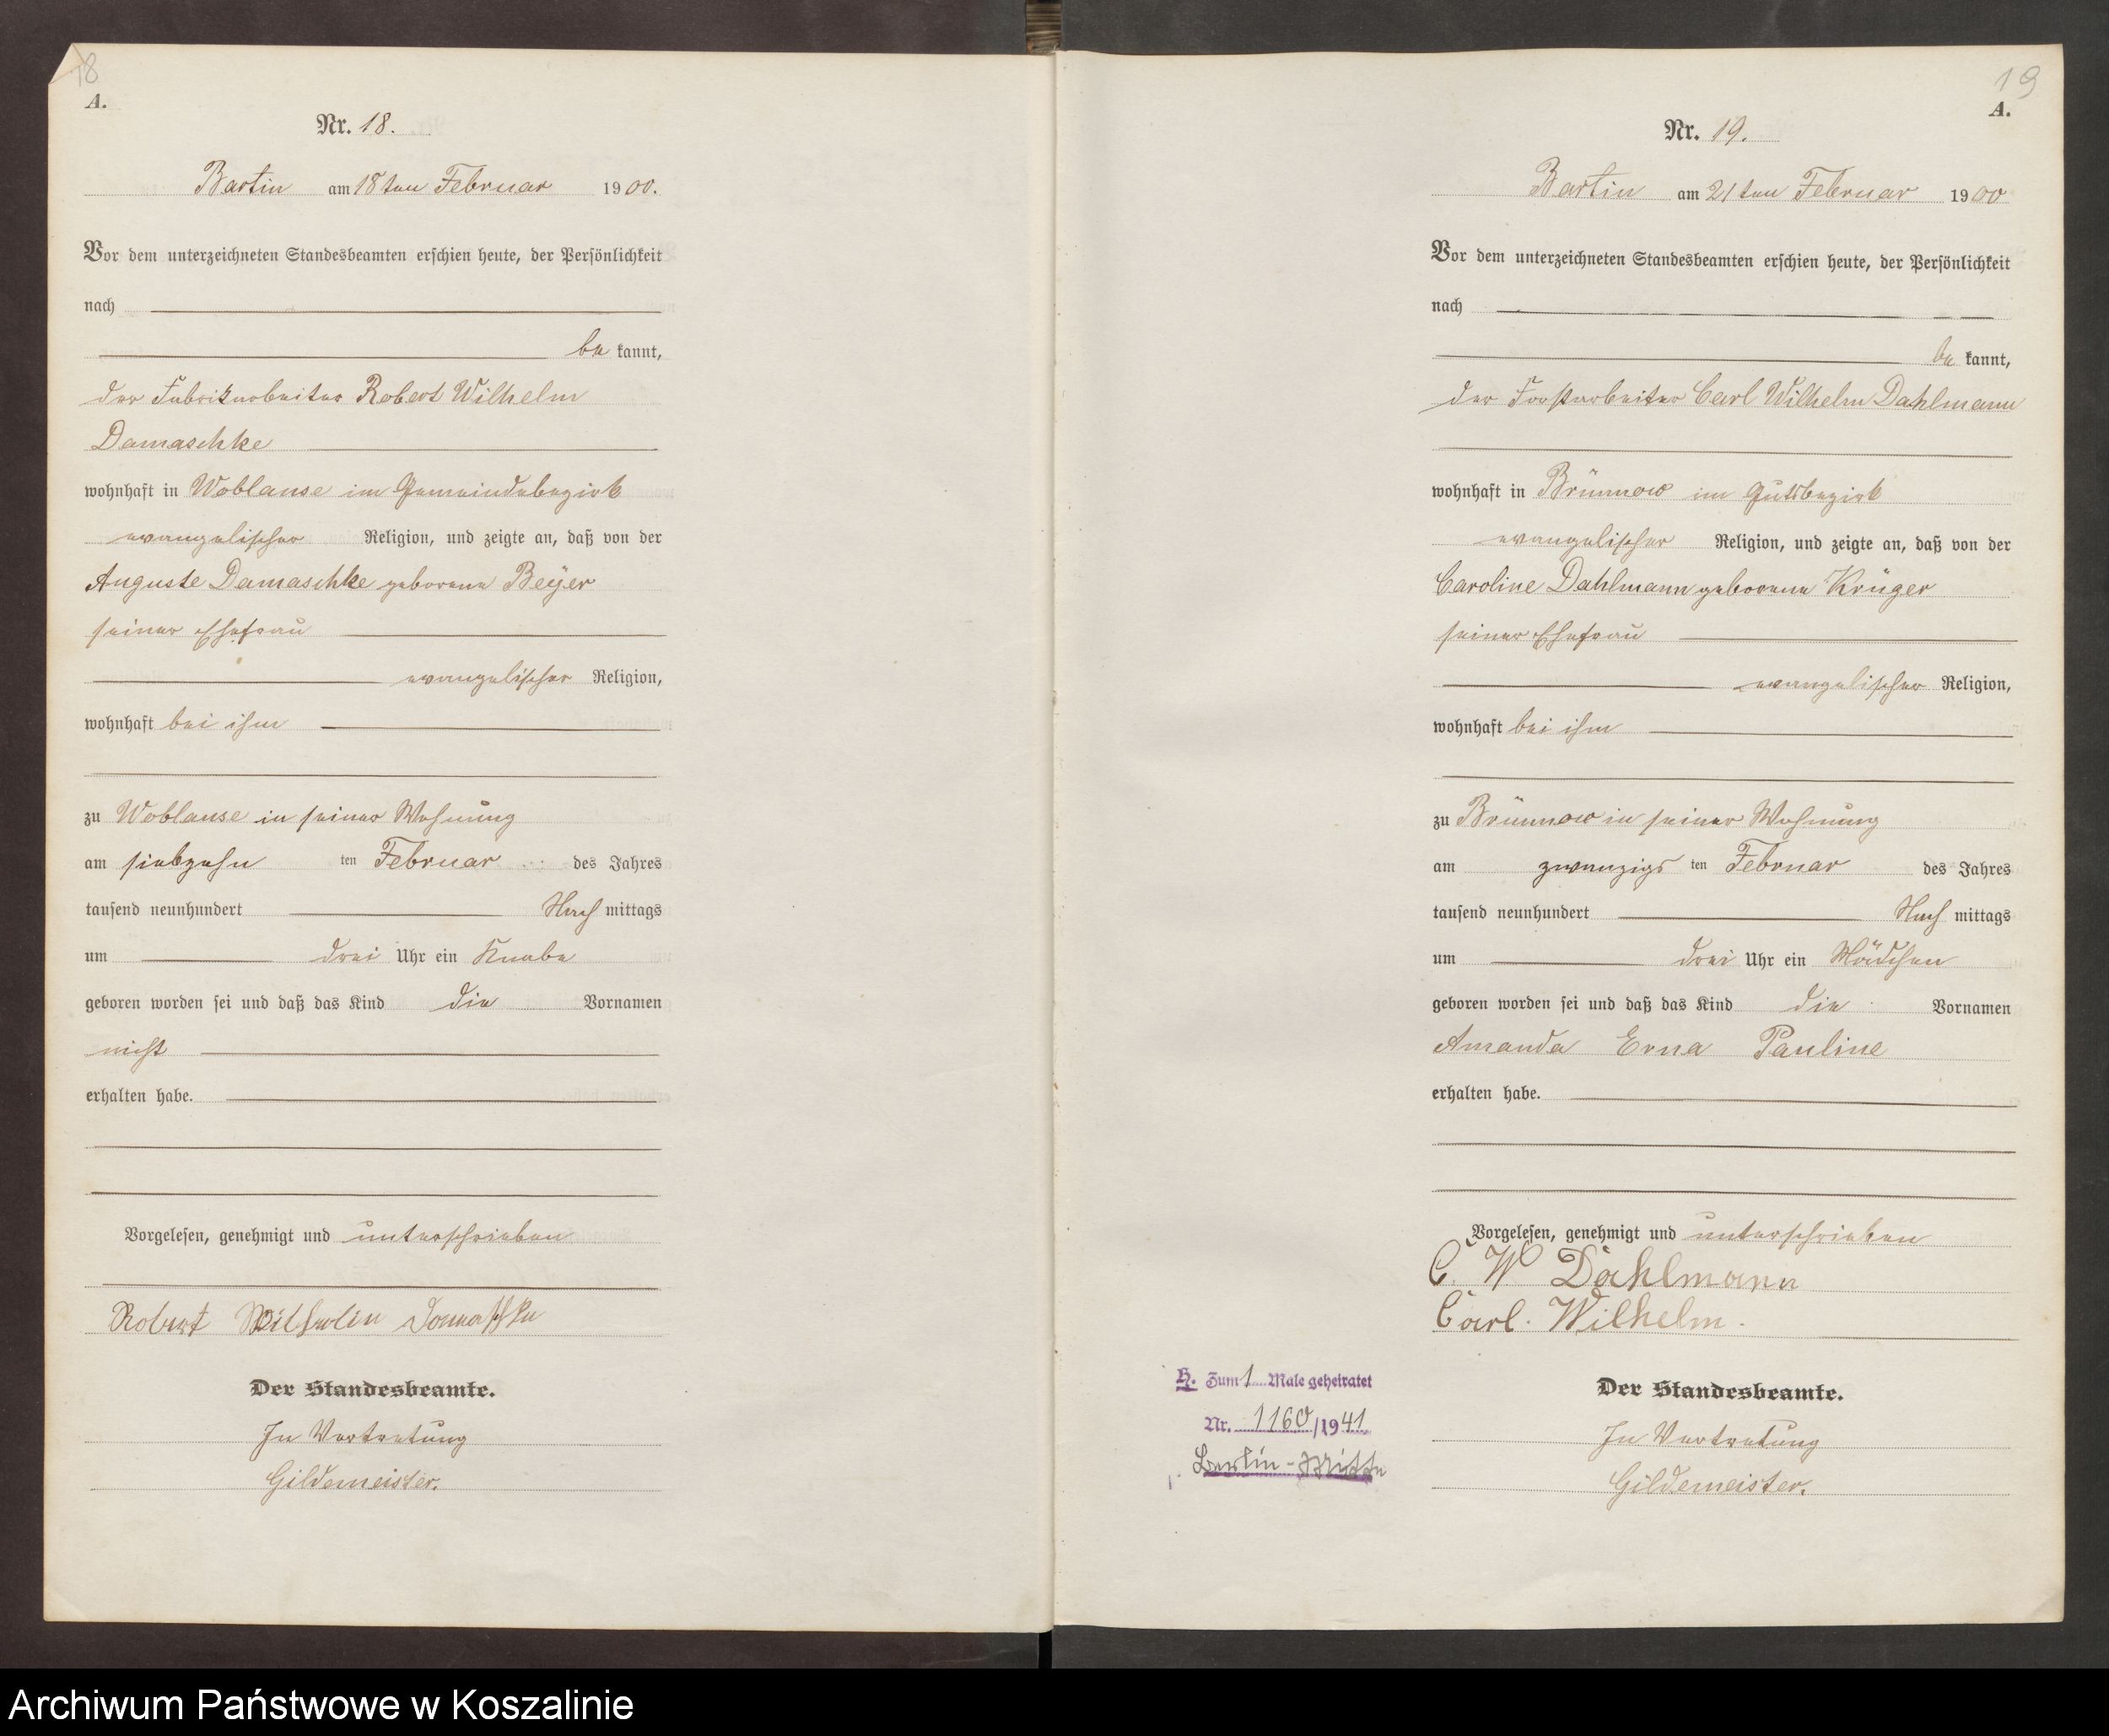 18
A.
Nr. 18.
Bartin am 18ten Februar 1900.
Vor dem unterzeichneten Standesbeamten erschien heute, der Persönlichkeit
nach
be kannt,
der Fabrikarbeiter Robert Wilhelm
Damaschke
wohnhaft in Woblanse im Gemeindebezirk
evangelischer Religion, und zeigte an, daß von der
Auguste Damaschke geborene Beÿer
seiner Ehefrau
evangelischer Religion,
wohnhaft bei ihm
zu Woblanse in seiner Wohnung
am siebzehn ten Februar des Jahres
tausend neunhundert Nach mittags
um drei Uhr ein Knabe
geboren worden sei und daß das Kind die Vornamen
nicht
erhalten habe.
Vorgelesen, genehmigt und unterschrieben
Robert Wilhelm Damaschke
Der Standesbeamte.
In Vertretung
Gildemeister.
19
A.
Nr. 19.
Bartin am 21ten Februar 1900
Vor dem unterzeichneten Standesbeamten erschien heute, der Persönlichkeit
nach
be kannt,
der Forstarbeiter Carl Wilhelm Dahlmann
wohnhaft in Brünnow im Gutsbezirk
evangelischer Religion, und zeigte an, daß von der
Caroline Dahlmann geborene Krüger
seiner Ehefrau
evangelischer Religion,
wohnhaft bei ihm
zu Brünnow in seiner Wohnung
am zwanzigs ten Februar des Jahres
tausend neunhundert Nach mittags
um drei Uhr ein Mädchen
geboren worden sei und daß das Kind die Vornamen
Amanda Erna Pauline
erhalten habe.
Vorgelesen, genehmigt und unterschrieben
C. W Dahlmann
Carl. Wilhelm.
Der Standesbeamte.
In Vertretung
Gildemeister.
H. Zum 1 Male geheiratet
Nr. 1160/1941
Berlin-Mitte
Archiwum Państwowe w Koszalinie